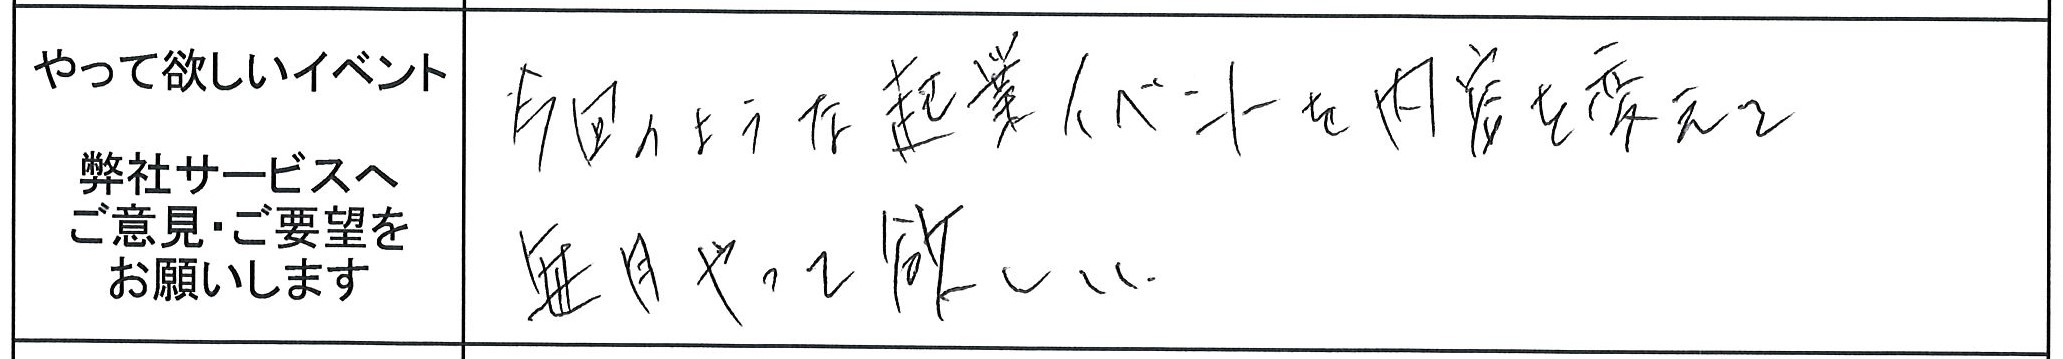 やって欲しいイベント
弊社サービスへ
ご意見・ご要望を
お願いします
今回のような起業イベントを内容を変えて
毎月やって欲しい.